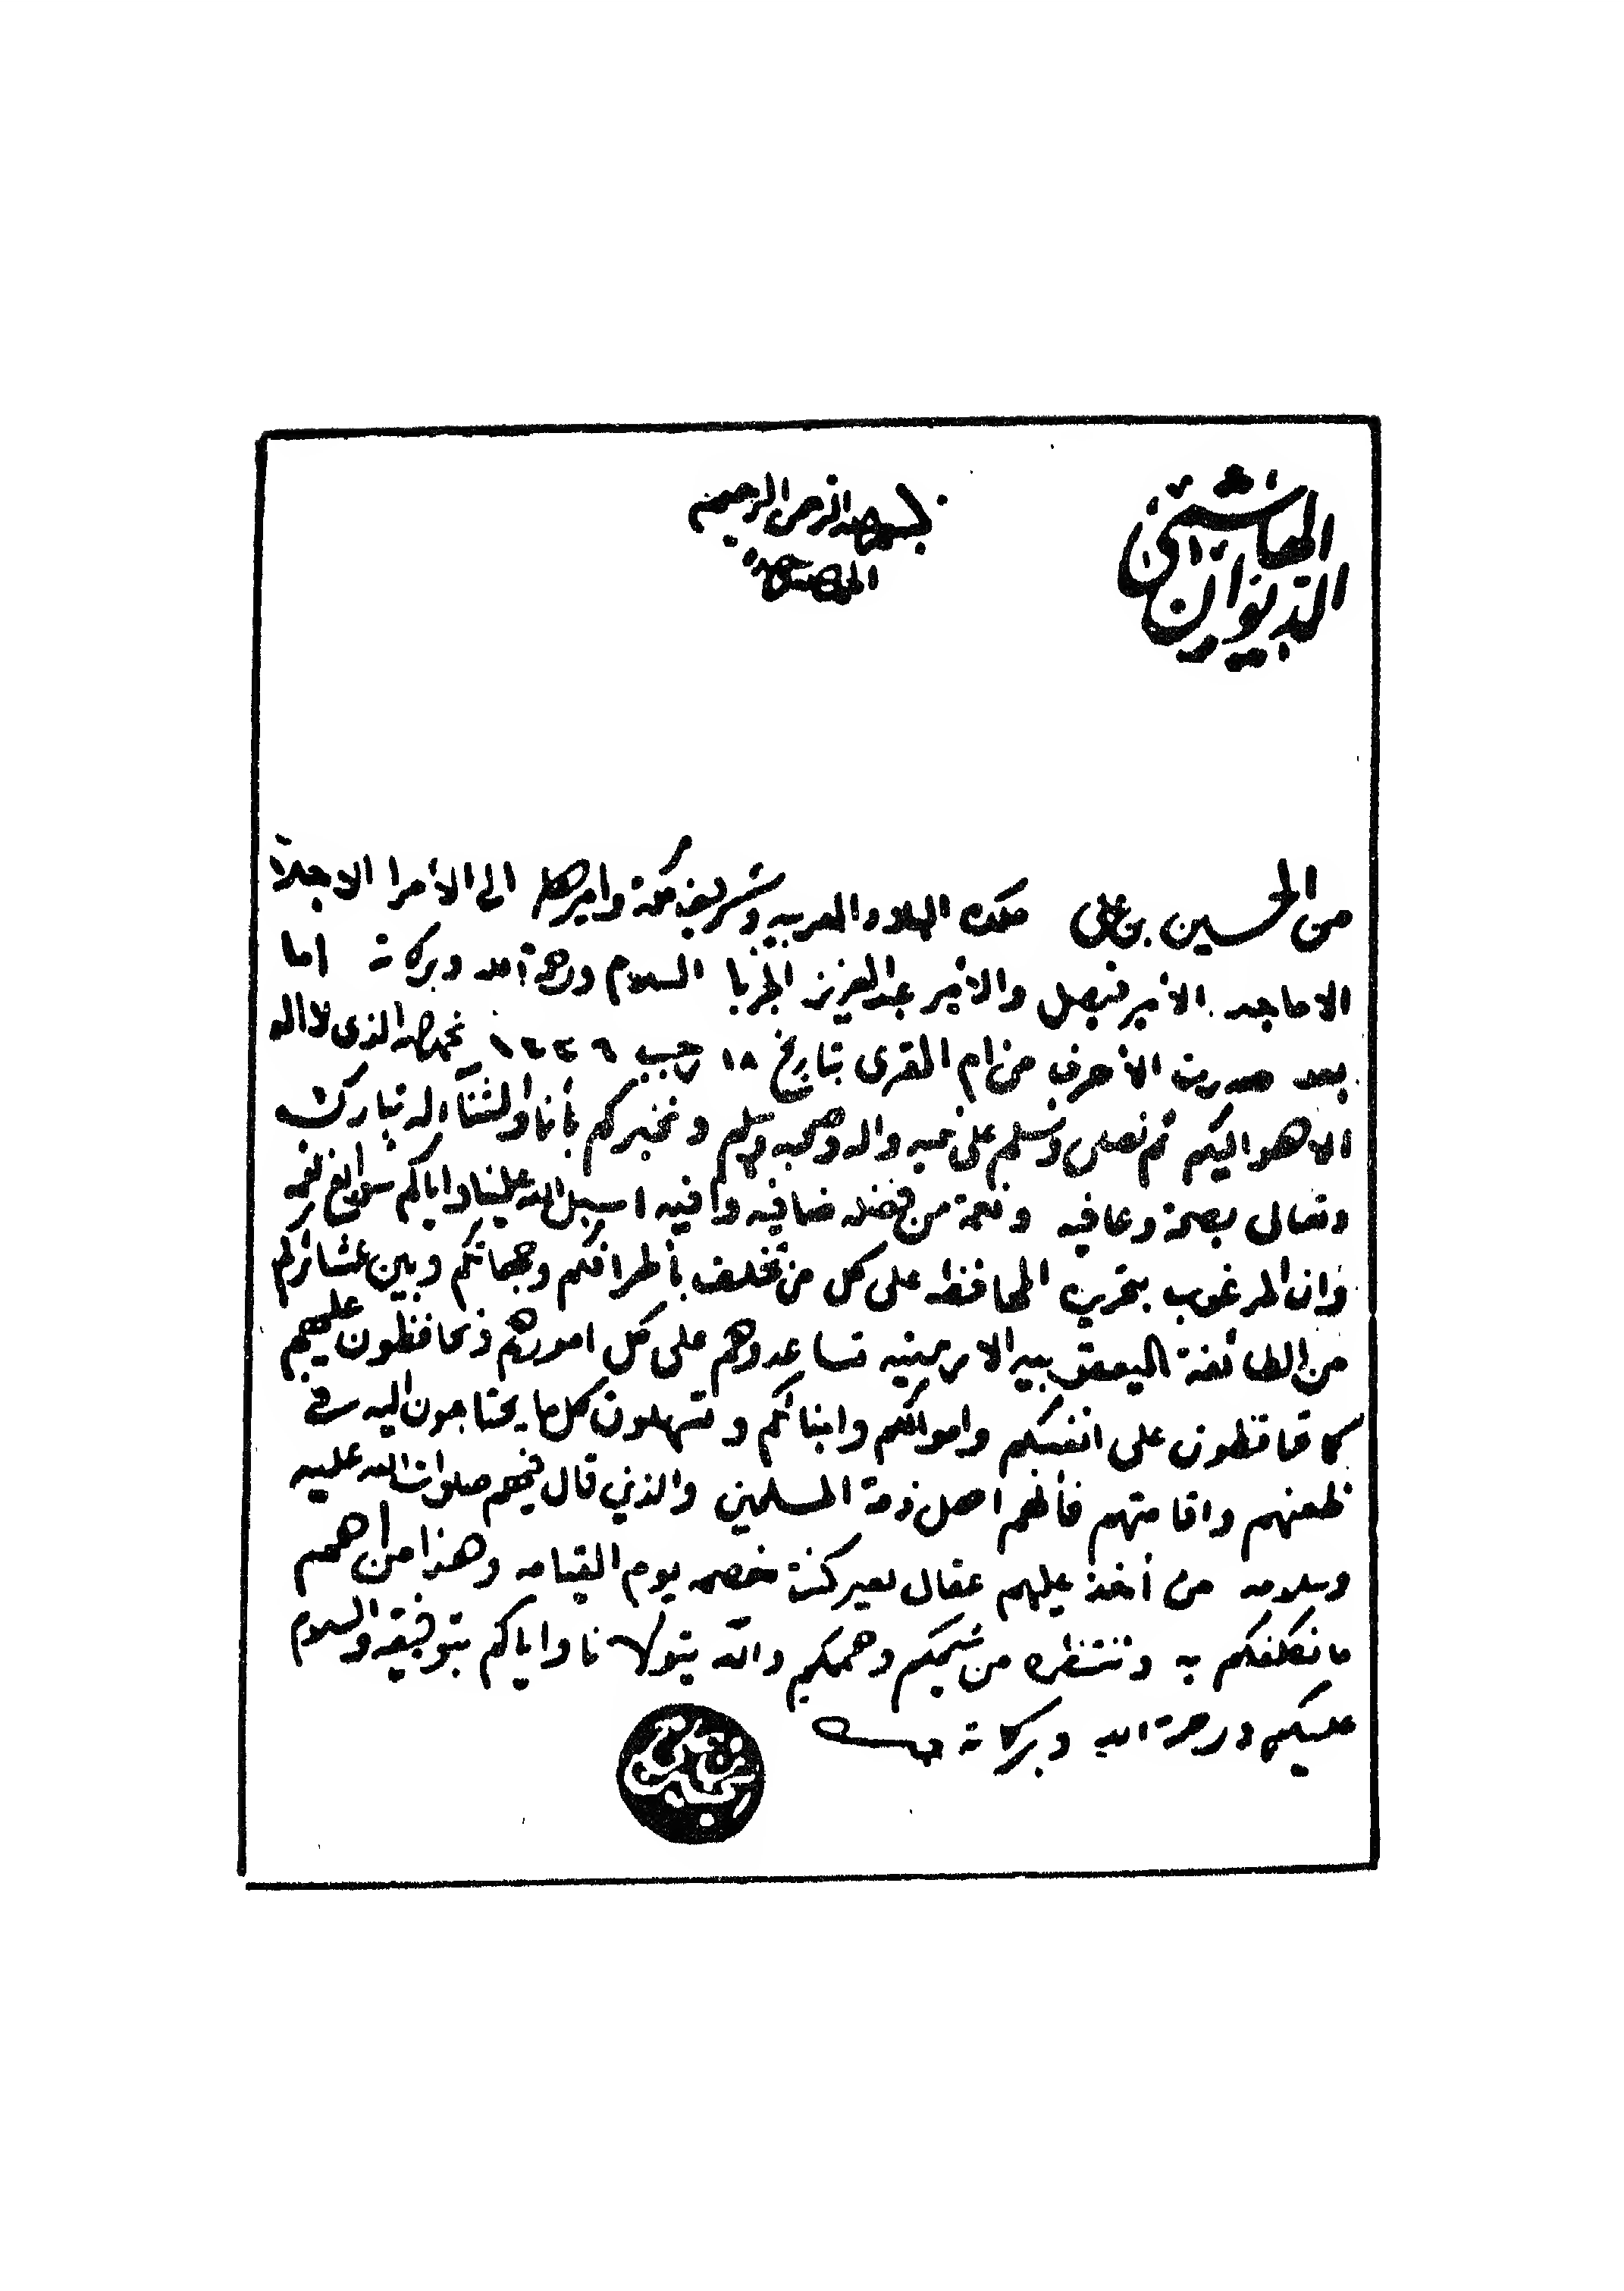 الديوان الهاشمي
بسم الله الرحمن الرحيم
الحمد لله وحده
من الحسين بن علي ملك البلاد العربيه وشريف مكة واميرها الى الأمرا الاجلاّ
الاماجد الأمير فيصل والأمير عبد العزيز الجربا السلام ورحمة الله وبركاته اما
بعد صدرت الأحرف من ام القرى بتاريخ ١٨ رجب ١٣٣٦ نحمد الله الذى لا اله
الا هو اليكم ثم نصلى ونسلم على نبيه واله وصحبه وسلم ونخبركم بأنا والثنآ له تبارك
وتعالى بصحة وعافيه ونعمة من فضله ضافيه وافيه اسبل الله علينا واياكم سوابغ نعمه
وان المرغوب بتحريره المحافظه على كل من تخلف بأطرافكم وجهاتكم وبين عشائركم
من الطائفة اليعقوبيه الارمنيه تساعدوهم على كل امورهم وتحافظون عليهم
كما تحافظون على انفسكم واموالكم وابنائكم وتسهلون كل ما يحتاجون اليه في
ظعنهم واقامتهم فأنهم اهل ذمة المسلمين والذين قال فيهم صلوات الله عليه
وسلامه من أخذ عليهم عقال بعير كنت خصمه يوم القيامه وهذا من أهم
ما نكلفكم به وننتظره من شيمكم وهممكم والله يتولانا واياكم بتوفيقه والسلام
عليكم ورحمة الله وبركاته